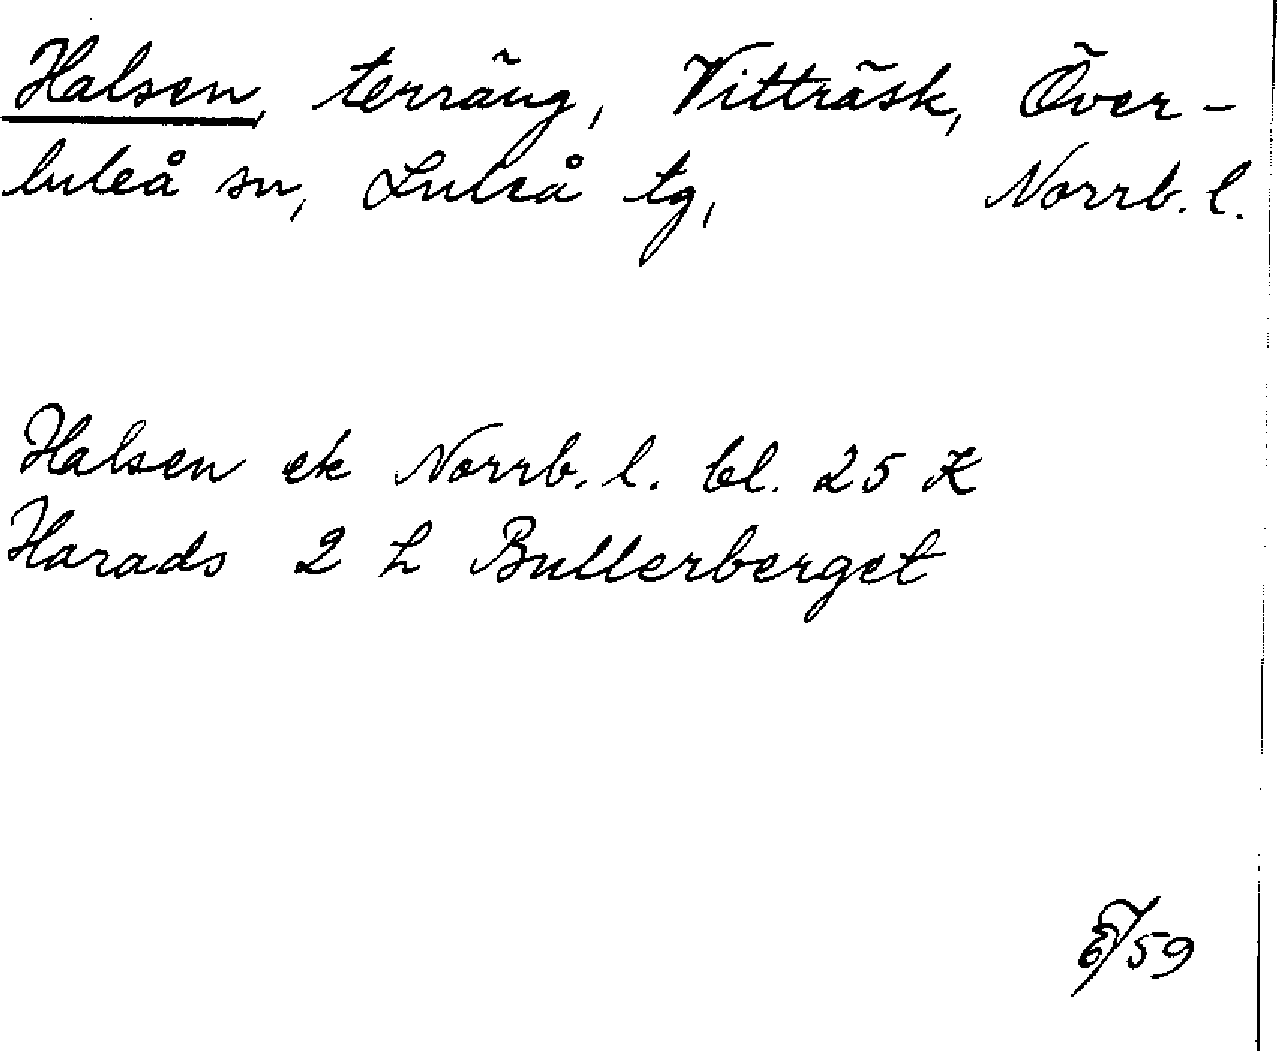 Halsen, terräng, Vitträsk, Över-
luleå sn, Luleå tg, Norrb. l.
Halsen ek Norrb. l. bl. 25 K
Harads 2 h Bullerberget
/59